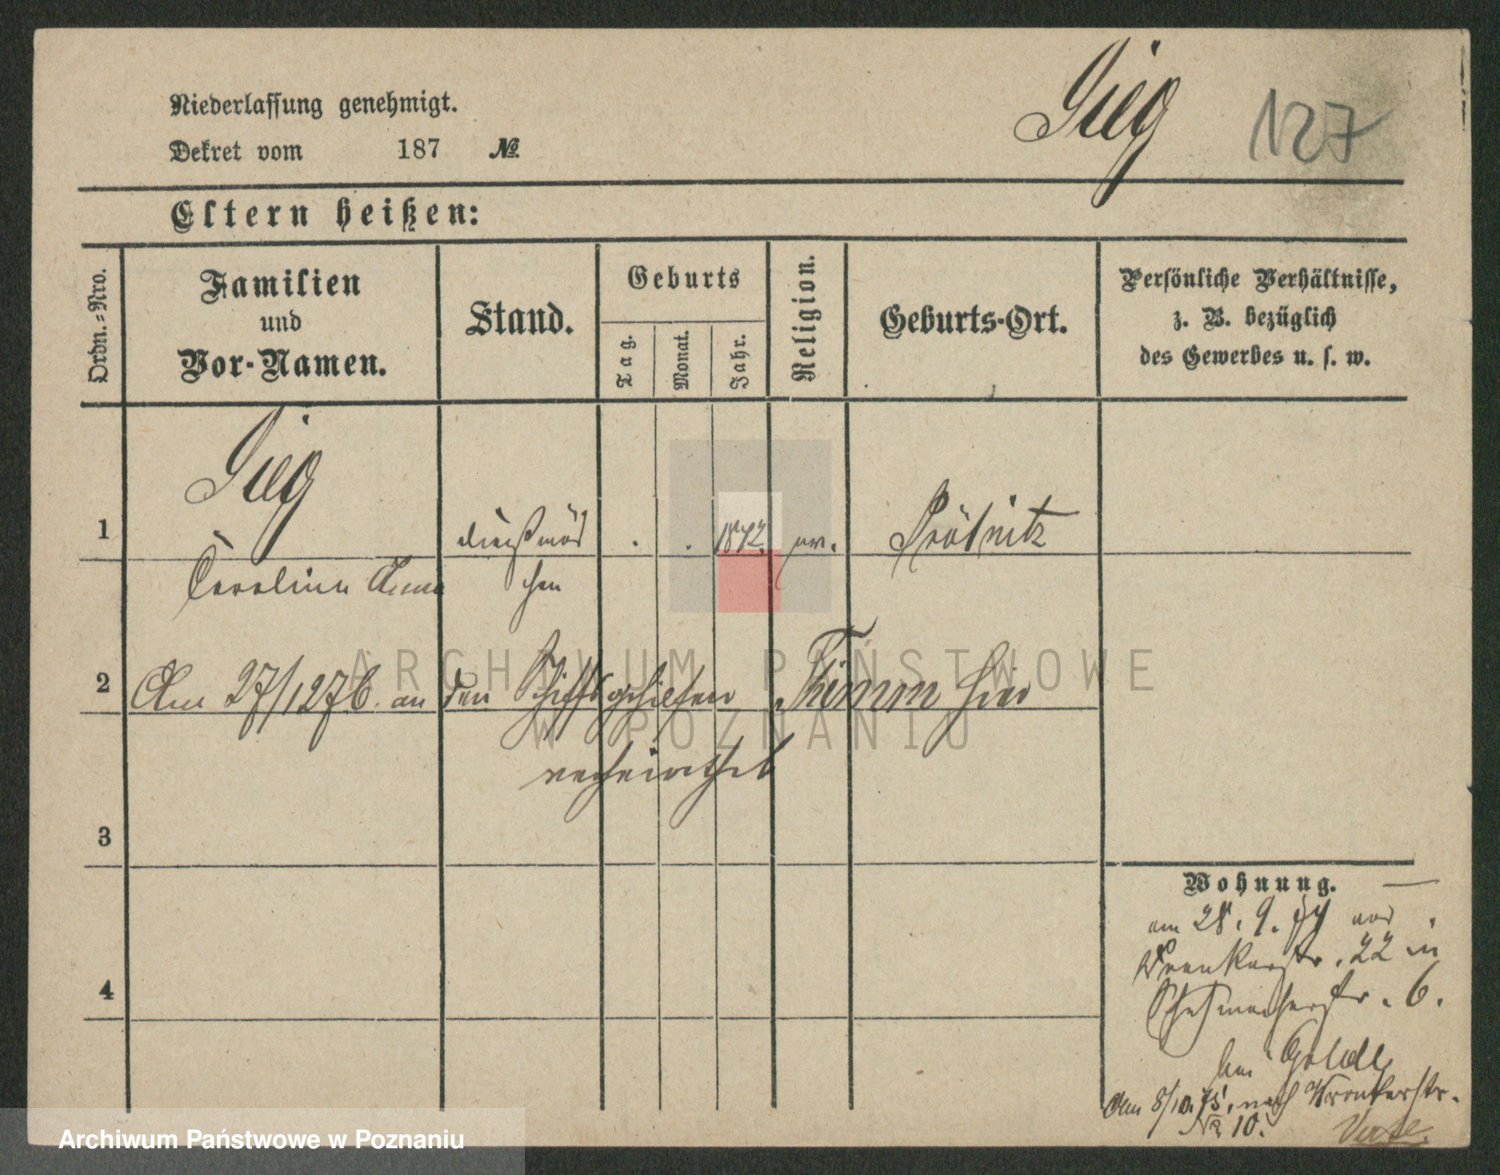 Niederlassung genehmigt.
Dekret vom 187 №
Gieg 127
Eltern heißen:
Ordn.-Nro.
Familien
und
Vor-Namen.
Stand.
Geburts
Tag.
Monat.
Jahr.
Religion.
Geburts-Ort.
Persönliche Verhältnisse,
z. B. bezüglich
des Gewerbes u. s. w.
Gieg
1 dienstmäd . . 1842 ev.
Caroline Anna chen
2 Am 27/12 76. an den Schiffsgehilfen Thimm hier
verheirathet
3
4
Wohnung.
am 28. 9. 74 von
Wronkerstr. 22 in
Schuhmacherstr. 6.
bei
Am 8/10. 75. nach Wronkerstr.
Nr. 10.
ARCHIWUM PAŃSTWOWE
W POZNANIU
Archiwum Państwowe w Poznaniu